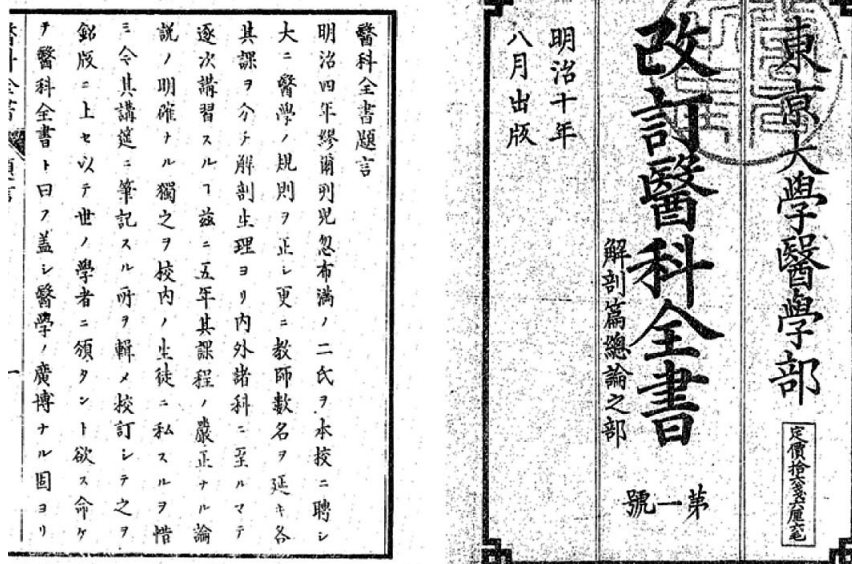 東京大學醫學部
定價拾六戔六厘六毛
改訂醫科全書
解剖篇總論之部
第一號
明治十年
八月出版
醫科全書題言
明治四年繆爾列兒忽布満ノ二氏ヲ本校ニ聘シ
大ニ醫學ノ規則ヲ正シ更ニ教師數名ヲ延キ各
其課ヲ分チ解剖生理ヨリ内外諸科ニ至ルマテ
逐次講習スルヿ茲ニ五年其課程ノ嚴正ナル論
説ノ明確ナル獨之ヲ校内ノ生徒ニ私スルヲ惜
ミ令其講筵ニ筆記スル所ヲ輯メ校訂シテ之ヲ
鉛版ニ上セ以テ世ノ學者ニ頒タント欲ス命ケ
テ醫科全書ト曰フ蓋シ醫學ノ廣博ナル固ヨリ